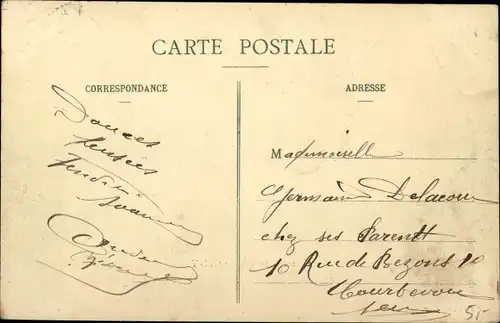 CARTE POSTALE
CORRESPONDANCE
Douces
Pensées
ADRESSE
Mademoiselle
Germaine Delacour
chez ses Parents
10 Rue de Bezons 10
Courbevoie
Seine